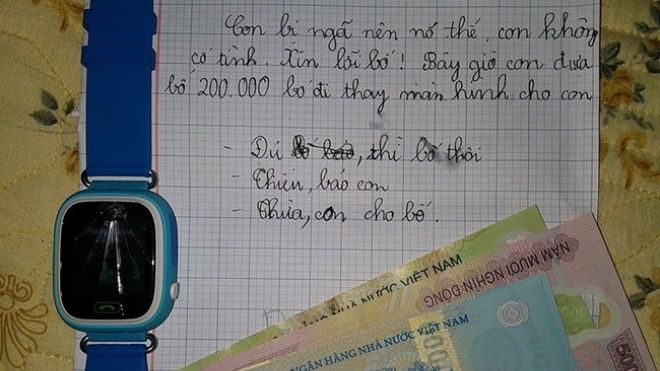 Con bị ngã nên nó thế, con không
cố tình. Xin lỗi bố! Bây giờ con đưa
bố 200.000 bố đi thay màn hình cho con
- Đủ, thì bố thôi
- Thiếu, bảo con
- Thừa, con cho bố.
NHÀ NƯỚC VIỆT NAM
NĂM MƯƠI NGHÌN ĐỒNG
NGÂN HÀNG NHÀ NƯỚC VIỆT NAM